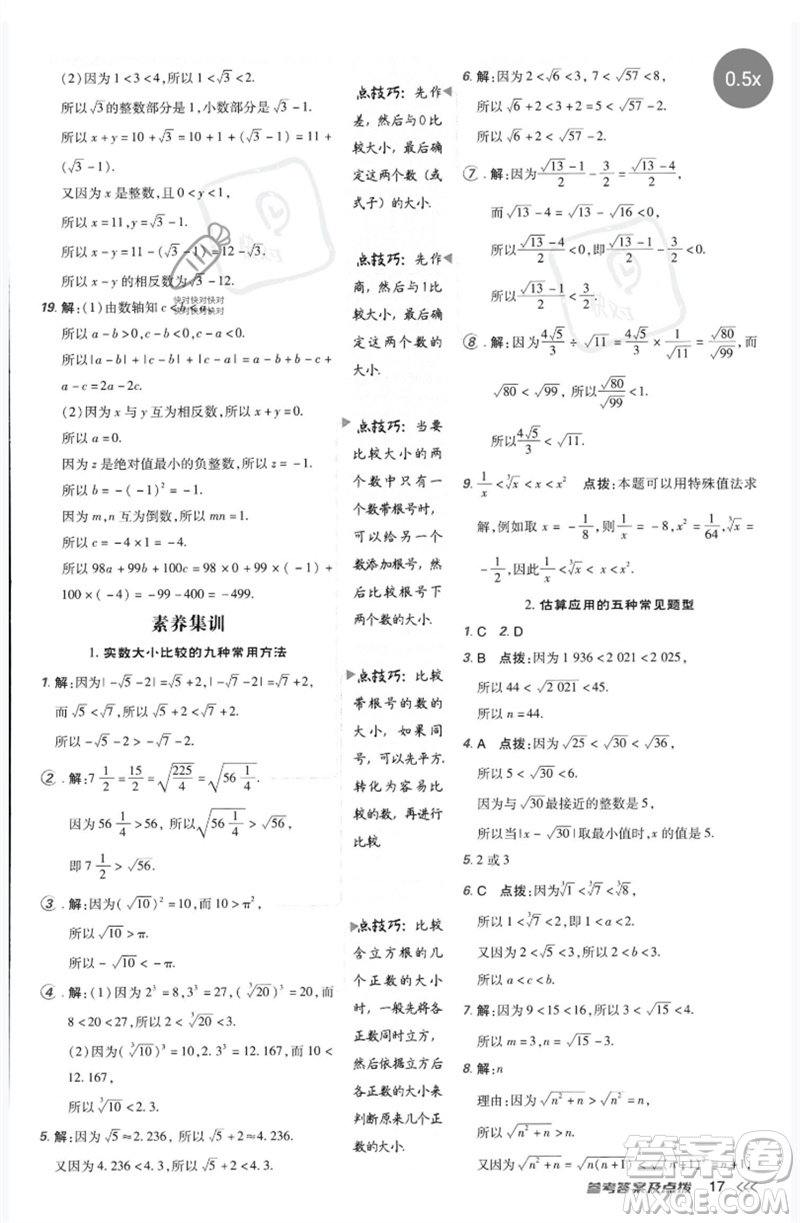 (2)因为 1<3<4,所以 1<√3<2.
所以√3的整数部分是 1,小数部分是√3-1.
所以 x+y=10+√3=10+1+(√3-1)=11+
(√3-1).
又因为 x 是整数,且 0<y<1,
所以 x=11,y=√3-1.
所以 x-y=11-(√3-1)=12-√3.
所以 x-y 的相反数为√3-12.
19. 解:(1)由数轴知 c<b<a,
所以 a-b>0,c-b<0,a-c>0.
所以|a-b|+|c-b|+|a-c|=a-b-c+b+
a-c=2a-2c.
(2)因为 x 与 y 互为相反数,所以 x+y=0.
所以 a=0.
因为 z 是绝对值最小的负整数,所以 z=-1.
所以 b=(-1)²=1.
因为 m,n 互为倒数,所以 mn=1.
所以 c=-4.
所以 98a+99b+100c=98×0+99×1+
100×(-4)=0+99-400=-301.
素养集训
1. 实数大小比较的九种常用方法
1. 解:因为|-√5-2|=√5+2,|-√7-2|=√7+2,
而√5<√7,所以√5+2<√7+2.
所以-√5-2>-√7-2.
2. 解:7 1/2=15/2=√(225/4)=√(56 1/4).
因为 56 1/4>56,所以√(56 1/4)>√56,
即 7 1/2>√56.
3. 解:因为(√10)²=10,而 10>π²,
所以√10>π.
所以-√10<-π.
4. 解:(1)因为 2³=8,3³=27,(∛20)³=20,而
8<20<27,所以 2<∛20<3.
(2)因为(∛10)³=10,2.3³=12.167,而 10<
12.167,
所以∛10<2.3.
5. 解:因为√5≈2.236,所以√5+2≈4.236.
又因为 4.236<4.3,所以√5+2<4.3.
点技巧:先作
差,然后与0比
较大小,最后确
定这两个数(或
式子)的大小.
点技巧:先作
商,然后与1比
较大小,最后
确定这两个数
的大小.
点技巧:当要
比较大小的两
个数中只有一
个数带根号时,
可以给另一个
数添加根号,
然后比较根号
下的两个数的
大小.
点技巧:比较
带根号的数的
大小,如果同
号,可以先平方,
转化为容易比
较的数,再进行
比较.
点技巧:比较
含立方根的几
个正数的大小
时,一般先将各
正数同时立方,
然后依据立方后
各正数的大小来
判断原来几个正
数的大小.
0.5x
6. 解:因为 2<√6<3,7<√57<8,
所以√6+2<3+2=5,√57-2>7-2=5.
所以√6+2<√57-2.
7. 解:因为(√13-1)/2-3/2=(√13-4)/2,
而√13-4=√13-√16<0,
所以(√13-4)/2<0,即(√13-1)/2-3/2<0.
所以(√13-1)/2<3/2.
8. 解:因为4√5/3÷√11=4√5/3×1/√11=√80/√99,而
√80<√99,所以√80/√99<1.
所以4√5/3<√11.
9. 1/x<∛x<x<x² 点拨:本题可以用特殊值法求
解,例如取 x=-1/8,则1/x=-8,x²=1/64,∛x=
-1/2,因此1/x<∛x<x<x².
2. 估算应用的五种常见题型
1. C 2. D
3. B 点拨:因为 1 936<2 021<2 025,
所以 44<√2 021<45.
所以 n=44.
4. A 点拨:因为√25<√30<√36,
所以 5<√30<6.
又因为与√30最接近的整数是 5,
所以当|x-√30|取最小值时,x 的值是 5.
5. 2 或 3
6. C 点拨:因为∛1<∛7<∛8,
所以 1<∛7<2,即 1<a<2.
又因为 2<b<3,c=3,
所以 a<b<c.
7. 解:因为 9<15<16,所以 3<√15<4.
所以 m=3,n=√15-3.
8. 解:n
理由:因为√(n²+n)>√n²=n,
所以√(n²+n)>n.
又因为√(n²+n)=√(n(n+1))<√((n+1)(n+1))
参考答案及点拨 17